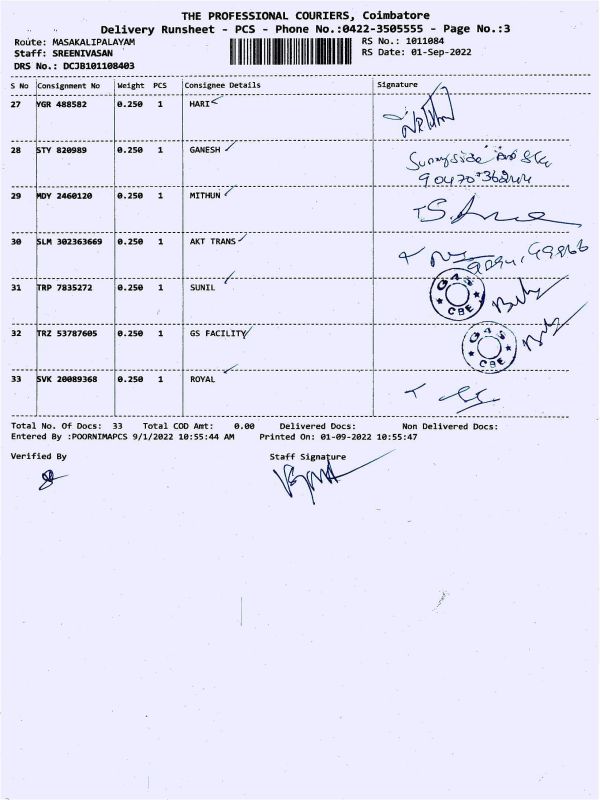 THE PROFESSIONAL COURIERS, Coimbatore
Delivery Runsheet - PCS - Phone No.:0422-3505555 - Page No.:3
Route: MASAKALIPALAYAM RS No.: 1011084
Staff: SREENIVASAN RS Date: 01-Sep-2022
DRS No.: DCJB101108403
S No Consignment No Weight PCS Consignee Details Signature
27 YGR 488582 0.250 1 HARI
28 STY 820989 0.250 1 GANESH Sunnyside
29 MDY 2460120 0.250 1 MITHUN
30 SLM 302363669 0.250 1 AKT TRANS
31 TRP 7835272 0.250 1 SUNIL G4S CBE
32 TRZ 53787605 0.250 1 GS FACILITY G4S CBE
33 SVK 20089368 0.250 1 ROYAL
Total No. Of Docs: 33 Total COD Amt: 0.00 Delivered Docs: Non Delivered Docs:
Entered By :POORNIMAPCS 9/1/2022 10:55:44 AM Printed On: 01-09-2022 10:55:47
Verified By Staff Signature